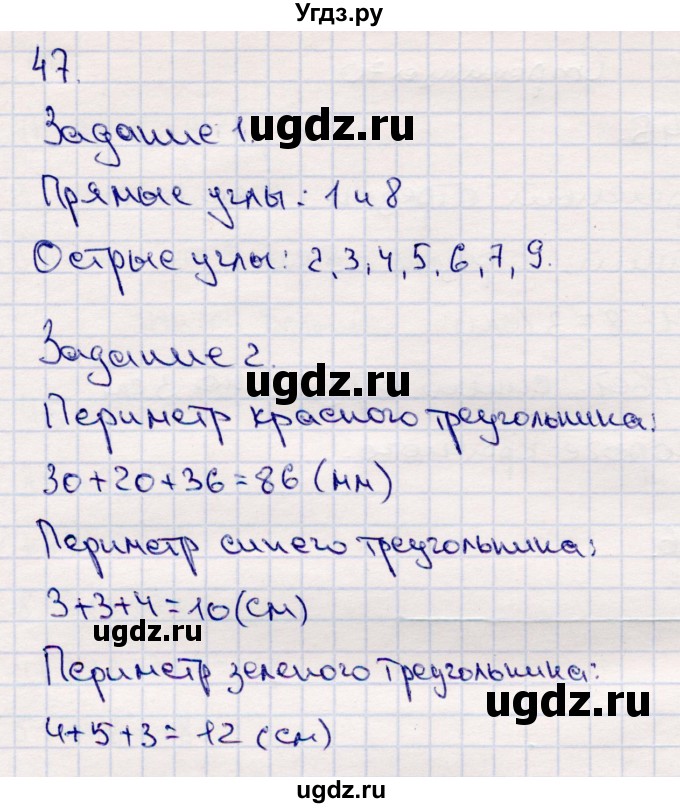 Угдз.ру
47.
Задание 1.
ugdz.ru
Прямые углы: 1 и 8
Острые углы: 2, 3, 4, 5, 6, 7, 9.
Задание 2.
ugdz.ru
Периметр красного треугольника:
30+20+36=86 (мм)
ugdz.ru
Периметр синего треугольника:
3+3+4=10 (см)
ugdz.ru
Периметр зеленого треугольника:
ugdz.ru
4+5+3=12 (см)
ugdz.ru